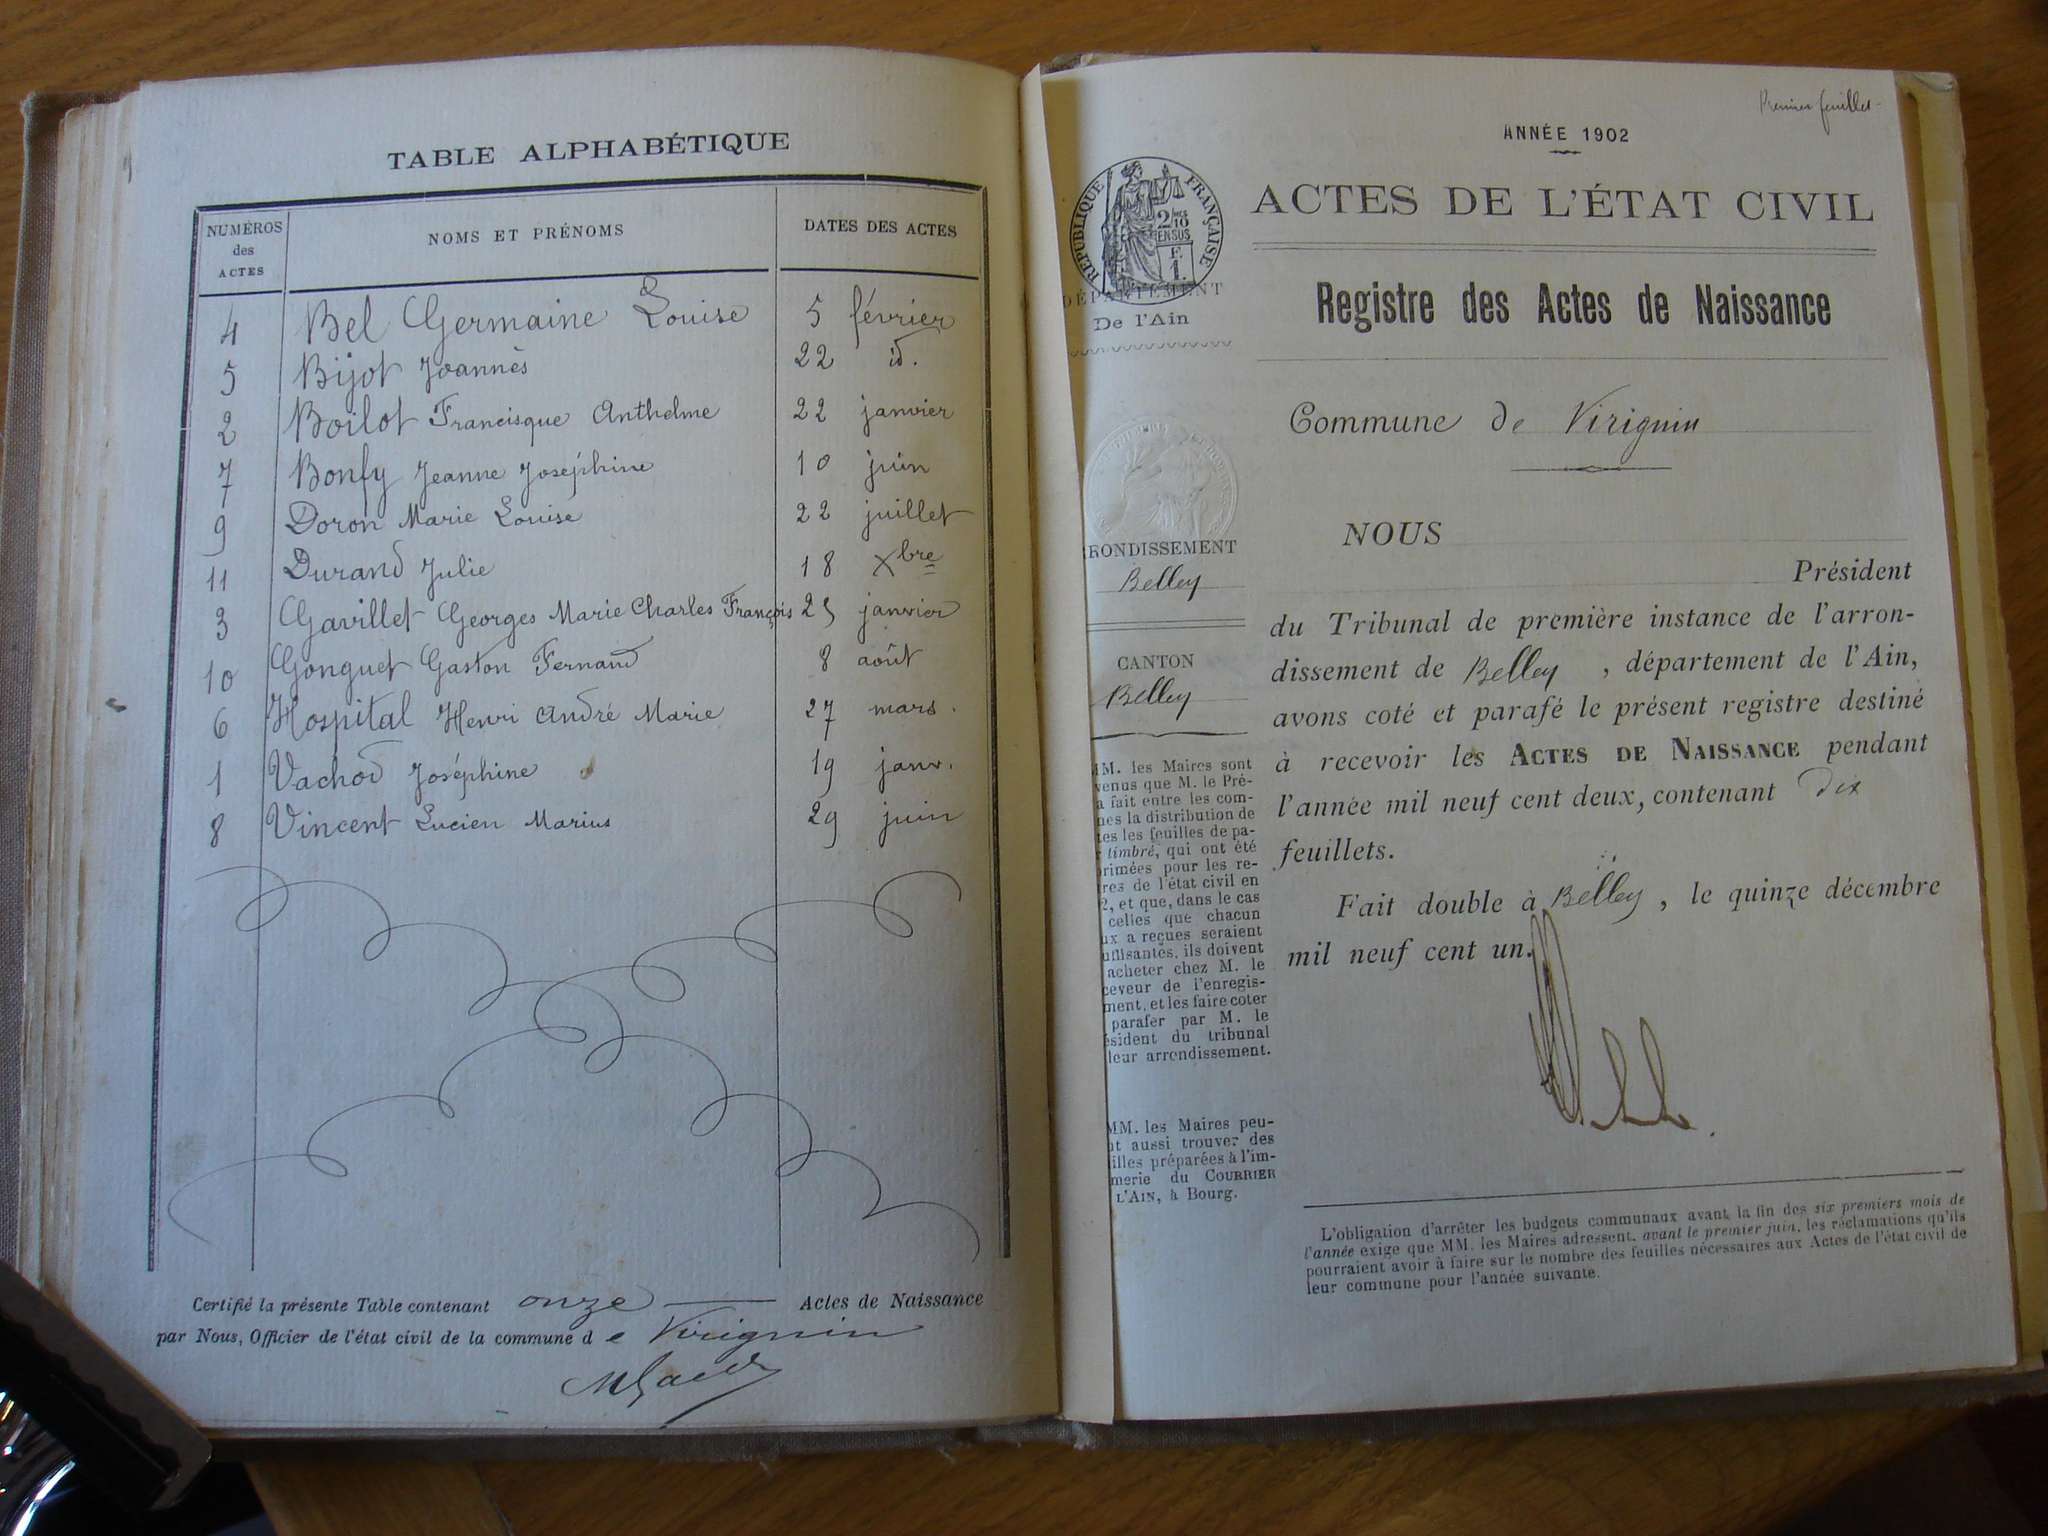 TABLE ALPHABÉTIQUE
NUMÉROS des ACTES NOMS ET PRÉNOMS DATES DES ACTES
4 Bel Germaine Louise 5 février
5 Bijot Joannès 22 id.
2 Boilot Francisque Anthelme 22 janvier
7 Bonfy Jeanne Joséphine 10 juin
9 Doron Marie Louise 22 juillet
11 Durand Julie 18 Xbre
3 Gavillet Georges Marie Charles François 25 janvier
10 Gonguet Gaston Fernand 8 août
6 Hospital Henri André Marie 27 mars.
1 Vachod Joséphine 19 janv.
8 Vincent Lucien Marius 29 juin
Certifié la présente Table contenant onze Actes de Naissance
par Nous, Officier de l'état civil de la commune de Virignin
Premier feuillet
ANNÉE 1902
ACTES DE L'ÉTAT CIVIL
RÉPUBLIQUE FRANÇAISE
2/10
EN SUS
F.
1
DÉPARTEMENT
De l'Ain
Registre des Actes de Naissance
Commune de Virignin
RONDISSEMENT
Belley
CANTON
Belley
MM. les Maires sont
venus que M. le Pré-
a fait entre les com-
nes la distribution de
tes les feuilles de pa-
r timbré, qui ont été
primées pour les re-
res de l'état civil en
2, et que, dans le cas
celles que chacun
ux a reçues seraient
uffisantes, ils doivent
acheter chez M. le
ceveur de l'enregis-
ment, et les faire coter
parafer par M. le
ésident du tribunal
leur arrondissement.
MM. les Maires peu-
nt aussi trouver des
illes préparées à l'im-
merie du COURRIER
L'AIN, à Bourg.
NOUS
Président
du Tribunal de première instance de l'arron-
dissement de Belley, département de l'Ain,
avons coté et parafé le présent registre destiné
à recevoir les ACTES DE NAISSANCE pendant
l'année mil neuf cent deux, contenant dix
feuillets.
Fait double à Belley, le quinze décembre
mil neuf cent un.
L'obligation d'arrêter les budgets communaux avant la fin des six premiers mois de
l'année exige que MM. les Maires adressent, avant le premier juin, les réclamations qu'ils
pourraient avoir à faire sur le nombre des feuilles nécessaires aux Actes de l'état civil de
leur commune pour l'année suivante.